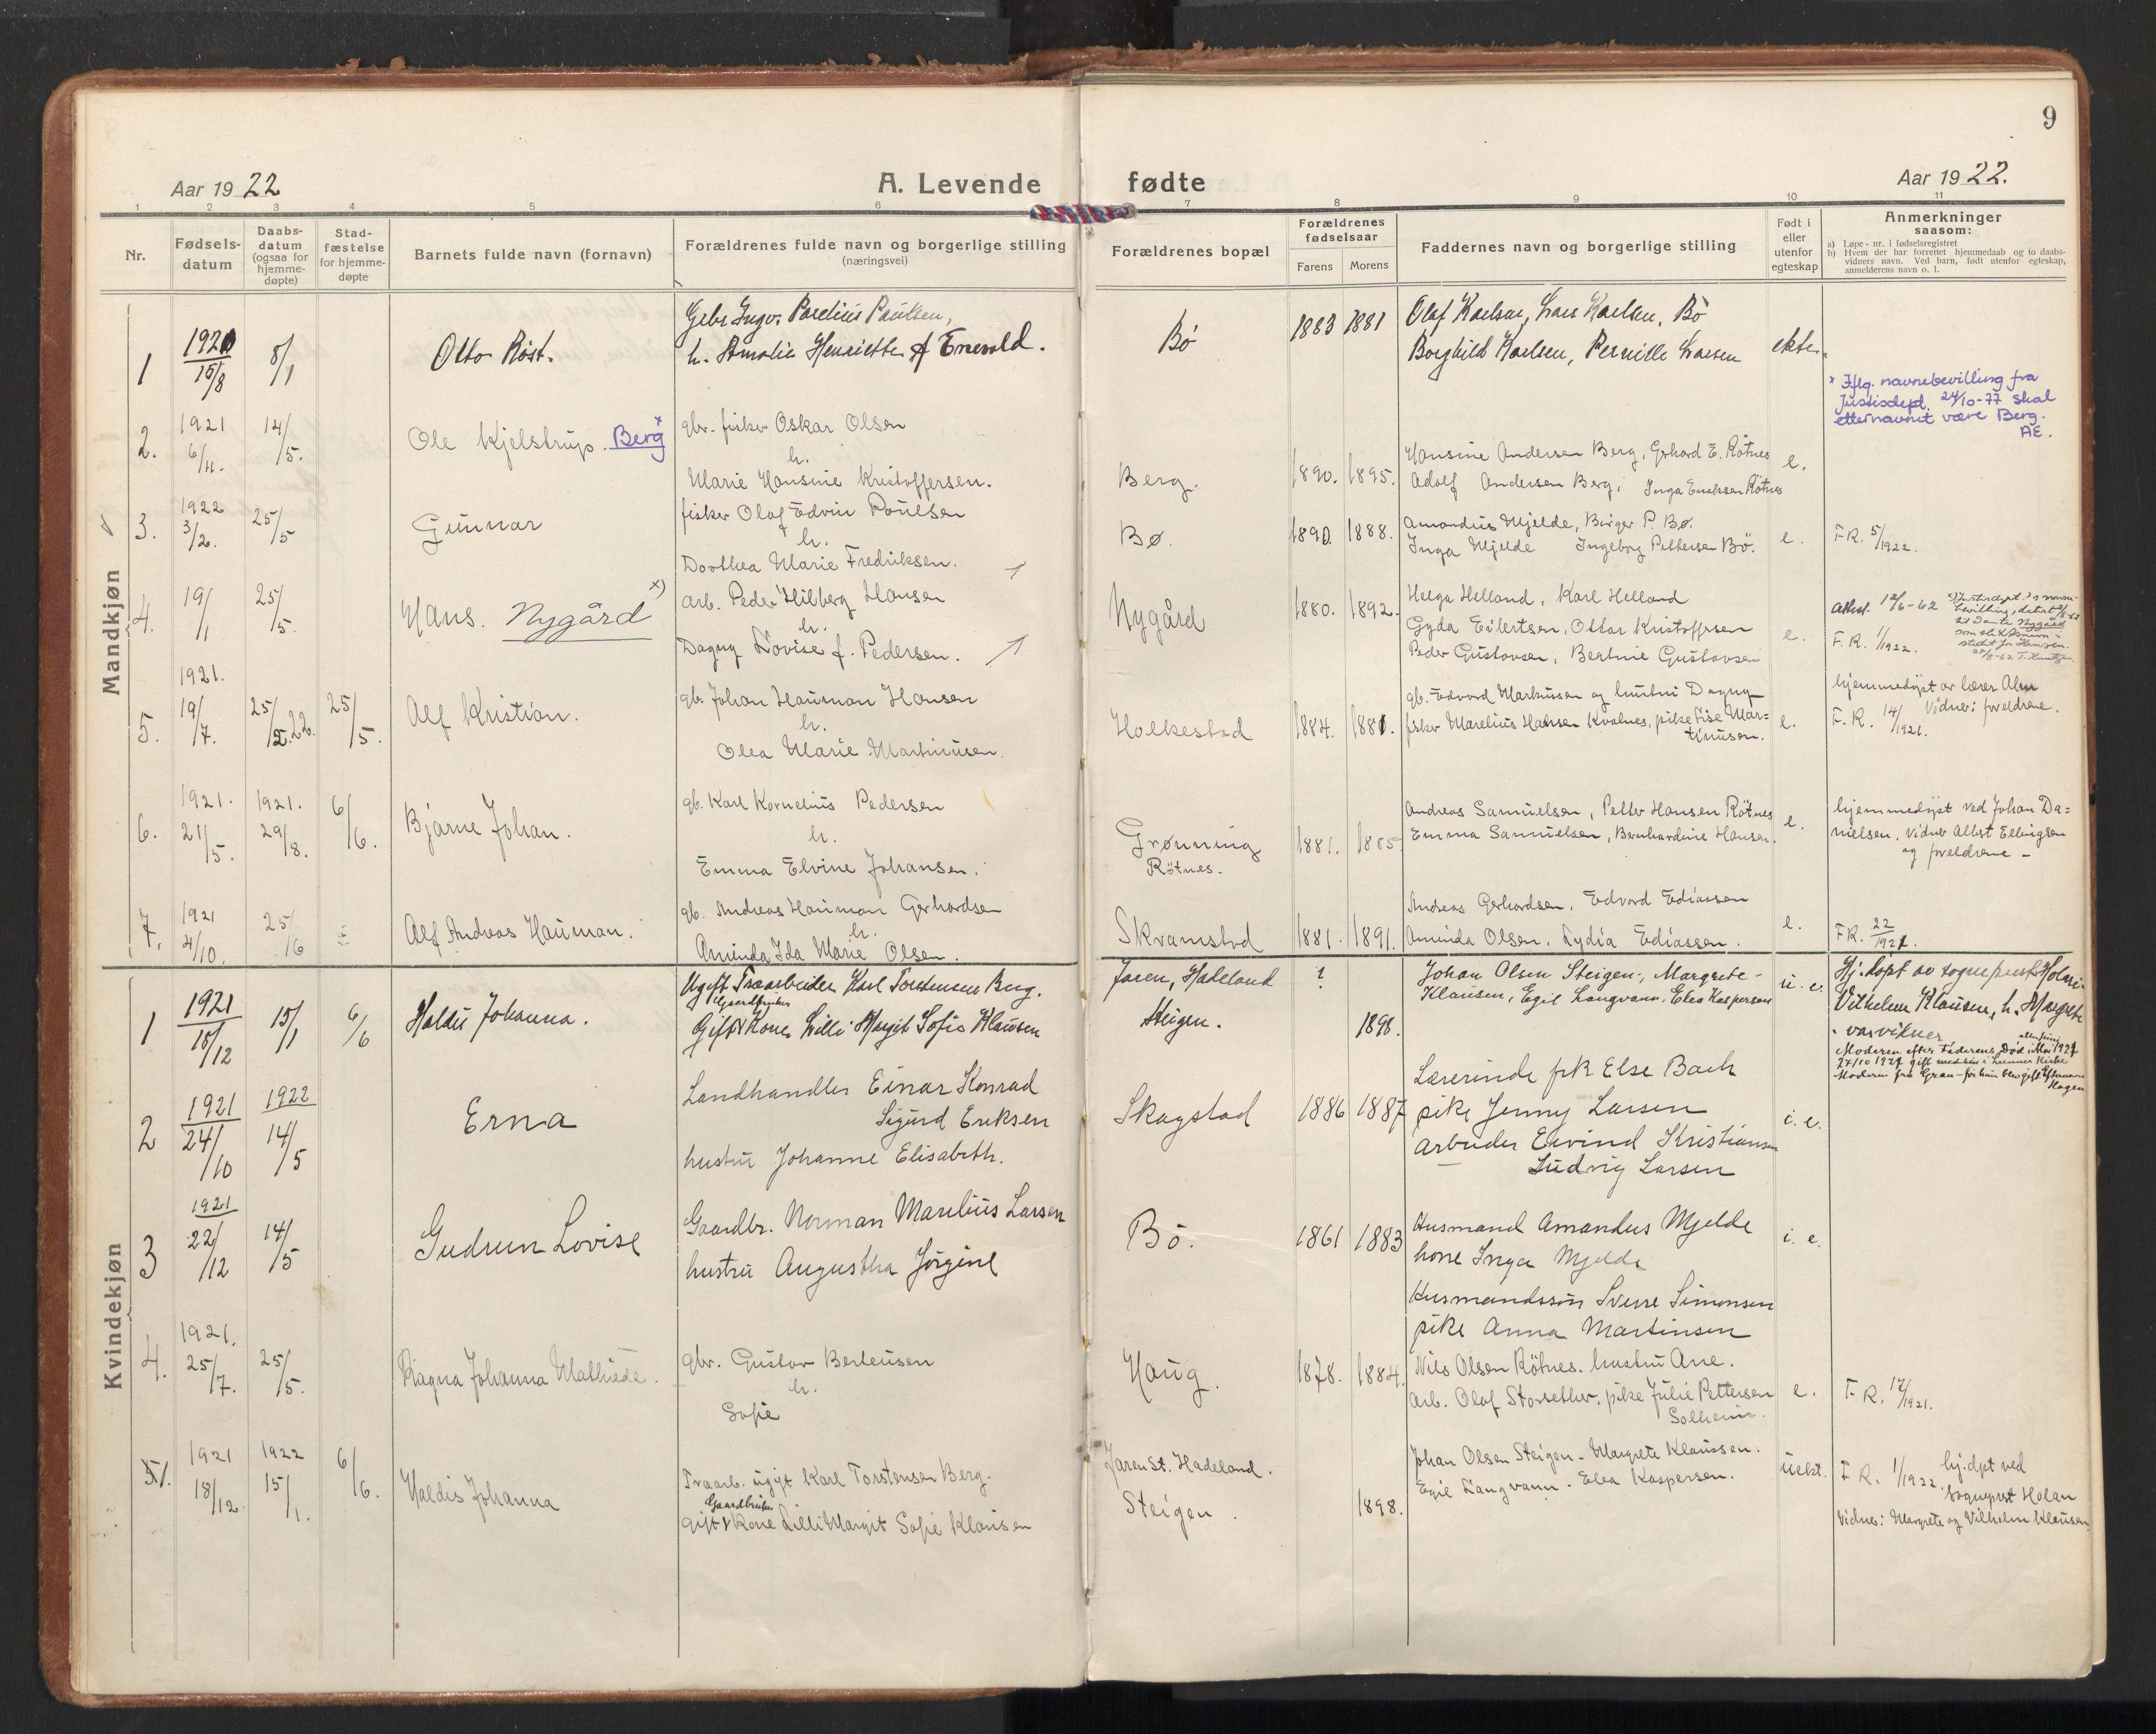 9
Aar 1922
A. Levende
fødte
Aar 1922.
1 2 3 4 5 6 7 8 9 10 11
Nr.
Fødsels-
datum
Daabs-
datum
(ogsaa for
hjemme-
døpte)
Stad-
fæstelse
for hjemme-
døpte
Barnets fulde navn (fornavn)
Forældrenes fulde navn og borgerlige stilling
(næringsvei)
Forældrenes bopæl
Forældrenes
fødselsaar
Farens Morens
Faddernes navn og borgerlige stilling
Født i
eller
utenfor
egteskap
Anmerkninger
saasom:
a) Løpe-nr. i fødselsregistret
b) Hvem der har forrettet hjemmedaab og to daabs-
vidners navn. Ved barn, født utenfor egteskap,
anmelderens navn o. l.
Mandkjøn
1
1920
15/8
8/1
Otto Røst.
Gbr Ingv. Parelius Paulsen,
h. Amalie Henriette f Enevold.
Bö
1883 1881
Olaf Karlsen, Lars Karlsen, Bö
Borghild Karlsen, Pernille Larsen
ekte.
2.
1921
6/11.
14/5.
Ole Kjelstrup. Berg x
gbr. fisker Oskar Olsen
h.
Marie Hansine Kristoffersen.
Berg.
1890. 1895.
Hansine Andersen Berg, Gerhard E. Rötnes
Adolf Andersen Berg, Inga Enoksen Rötnes
e.
x Iflg. navnebevilling fra
Justisdept. 24/10-77 skal
etternavnet være Berg.
AE.
3.
1922
3/2.
25/5
Gunnar
fisker Olaf Edvin Poulsen
h.
Dorthea Marie Fredriksen.
Bø.
1890. 1888.
Amandus Mjelde, Birger P. Bø.
Inga Mjelde Ingeborg Pettersen Bö.
e.
F.R. 5/1922.
4.
19/1
25/5.
Hans. Nygård x)
arb. Peder Hilberg Hansen
h.
Dagny Lovise f. Pedersen.
Nygård
1880. 1892.
Helga Helland, Karl Helland
Gyda Eilertsen, Ottar Kristoffersen
Peder Gustavsen, Beatrie Gustavsen
e.
Attest. 12/6-62
F.R. 1/1922.
5.
1921.
19/7.
25/2.22.
25/5.
Alf Kristian.
gb. Johan Hauman Hansen
h.
Olea Marie Martinusen.
Holkestad
1884. 1881.
gb. Edvard Markussen og hustru Dagny
fisker Marelius Hansen Kvalnes, pike Lise Mar=
tinusen.
e.
hjemmedøpt av lærer Alm
Vidner: foreldrene.
F.R. 14/1921.
6.
1921.
21/5.
1921.
29/8.
6/6.
Bjarne Johan.
gb. Karl Kornelius Pedersen
h.
Emma Elvine Johansen.
Grønning
Rötnes.
1881. 1885
Andreas Samuelsen, Petter Hansen Rötnes
Emma Samuelsen, Bernhardine Hansen.
e.
hjemmedøpt ved Johan Da=
nielsen. Vidner Albert Ellingsen
og foreldrene -
7.
1921
4/10.
25/16
Alf Andreas Hauman.
gb. Andreas Hauman Gerhardsen
h.
Aminda Ida Marie Olsen.
Skramstad
1881. 1891.
Andreas Gerhardsen, Edvard Ediassen
Aminda Olsen, Lydia Ediassen.
e.
F.R. 22/1921.
Kvindekjøn
1
1921
18/12
15/1
6/6
Haldis Johanna.
Ugift Traarbeider Karl Torstensen Berg.
Gaardbruker
Gift Kone Lilli Margit Sofie Klausen
Jaren, Hadeland
Steigen.
?
1898.
Johan Olsen Steigen, Margrete
Klausen, Egil Langvann, Elea Kaspersen
u. e.
Hj.døpt av sogneprest Holm
Vilhelm Klausen, h. Margrete
var vidner
Moderen efter Faderens Død i Mai 1927
2
1921
24/10
1922
14/5
Erna
Landhandler Einar Konrad
Sigurd Eriksen
hustru Johanne Elisabeth.
Skagstad
1886 1887
Lærerinde frk Else Bach
pike Jenny Larsen
Arbeider Eivind Kristiansen
Ludvig Larsen
i. e.
3
1921
22/12
14/5
Gudrun Lovise
Gaardbr. Norman Marelius Larsen
hustru Augustha Jørgine
Bö.
1861 1883
Husmand Amandus Mjelde
kone Inga Mjelde
Husmandssön Sverre Simonsen
pike Anna Martinsen
i. e.
4.
1921.
25/7.
25/5.
Ragna Johanna Mathilde.
gbr. Gustav Berteusen
h.
Sofie
Haug.
1878. 1884.
Nils Olsen Rötnes. hustru Ane.
Arb. Olaf Storsether, pike Julie Pettersen
Solheim.
e.
F.R. 17/1921.
5.
1921
18/12.
1922
15/1.
6/6.
Haldis Johanna
Traarb. ugift Karl Torstensen Berg.
Gaardbruker
Gift Kone Lilli Margit Sofie Klausen
Jaren St. Hadeland.
Steigen.
1898.
Johan Olsen Steigen - Margrete Klaussen.
Egil Langvann - Elea Kaspersen.
uekt.
F.R. 1/1922. hj.døpt ved
Sogneprest Holm
Vidner: Margrete og Vilhelm Klausen